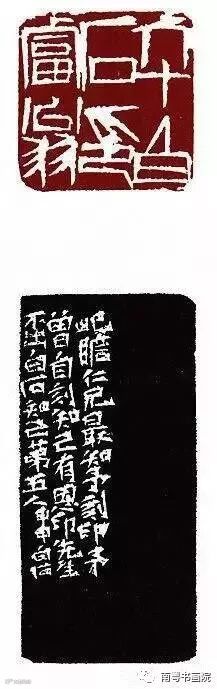 六十白
石印
富翁
屺瞻仁兄最知予刻印予
曾自刻知己有恩印先生
不出白石知己第五人甲申白石
南粤书画院